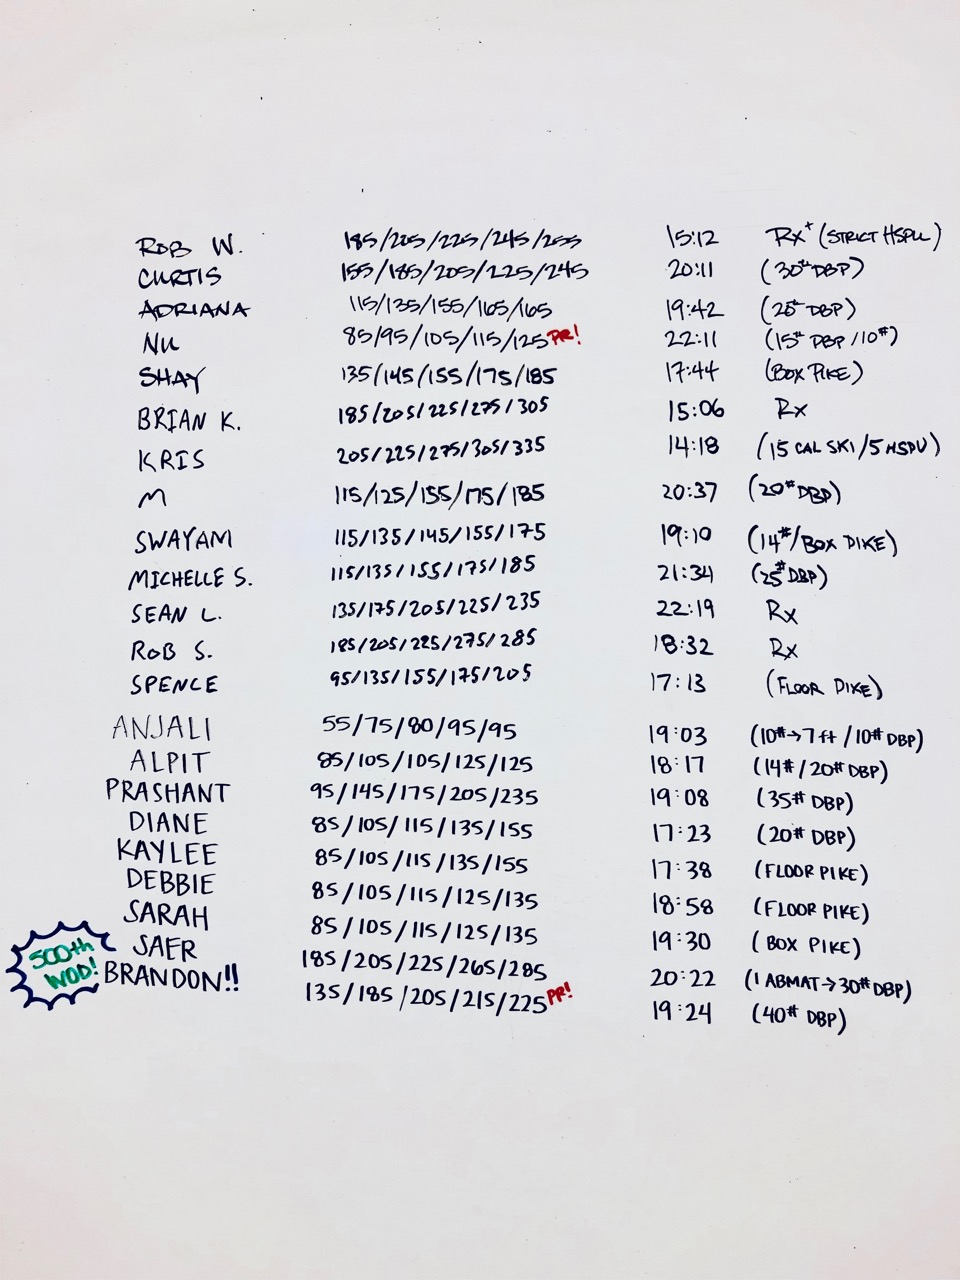 ROB W. 185/205/225/245/255 15:12 Rx+ (STRICT HSPU)
CURTIS 155/185/205/225/245 20:11 (30# DBP)
ADRIANA 115/135/155/165/165 19:42 (25# DBP)
NU 85/95/105/115/125 PR! 22:11 (15# DBP/10#)
SHAY 135/145/155/175/185 17:44 (BOX PIKE)
BRIAN K. 185/205/225/275/305 15:06 Rx
KRIS 205/225/275/305/335 14:18 (15 CAL SKI/5 HSPU)
M 115/125/155/175/185 20:37 (20# DBP)
SWAYAM 115/135/145/155/175 19:10 (14#/BOX PIKE)
MICHELLE S. 115/135/155/175/185 21:34 (25# DBP)
SEAN L. 135/175/205/225/235 22:19 Rx
ROB S. 185/205/225/275/285 18:32 Rx
SPENCE 95/135/155/175/205 17:13 (FLOOR PIKE)
ANJALI 55/75/80/95/95 19:03 (10#→7 ft/10# DBP)
ALPIT 85/105/105/125/125 18:17 (14#/20# DBP)
PRASHANT 95/145/175/205/235 19:08 (35# DBP)
DIANE 85/105/115/135/155 17:23 (20# DBP)
KAYLEE 85/105/115/135/155 17:38 (FLOOR PIKE)
DEBBIE 85/105/115/125/135 18:58 (FLOOR PIKE)
SARAH 85/105/115/125/135 19:30 (BOX PIKE)
SAER 185/205/225/265/285 20:22 (1 ABMAT→30# DBP)
500th
WOD!
BRANDON!! 135/185/205/215/225 PR! 19:24 (40# DBP)